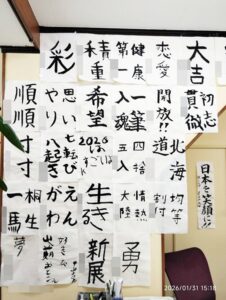 大吉
恋愛
健康
第一
積重
彩
初志
貫徹
開放!!
一筆
入魂
希望
思い
やり
順順
北海
道
四捨
五入
七転び
八起き
寸寸
均等
割付
情熱
大陸
生きる
えん
がわ
桐生
一馬
日本を笑顔に!!
勇
新展
夢
2026/01/31 15:18